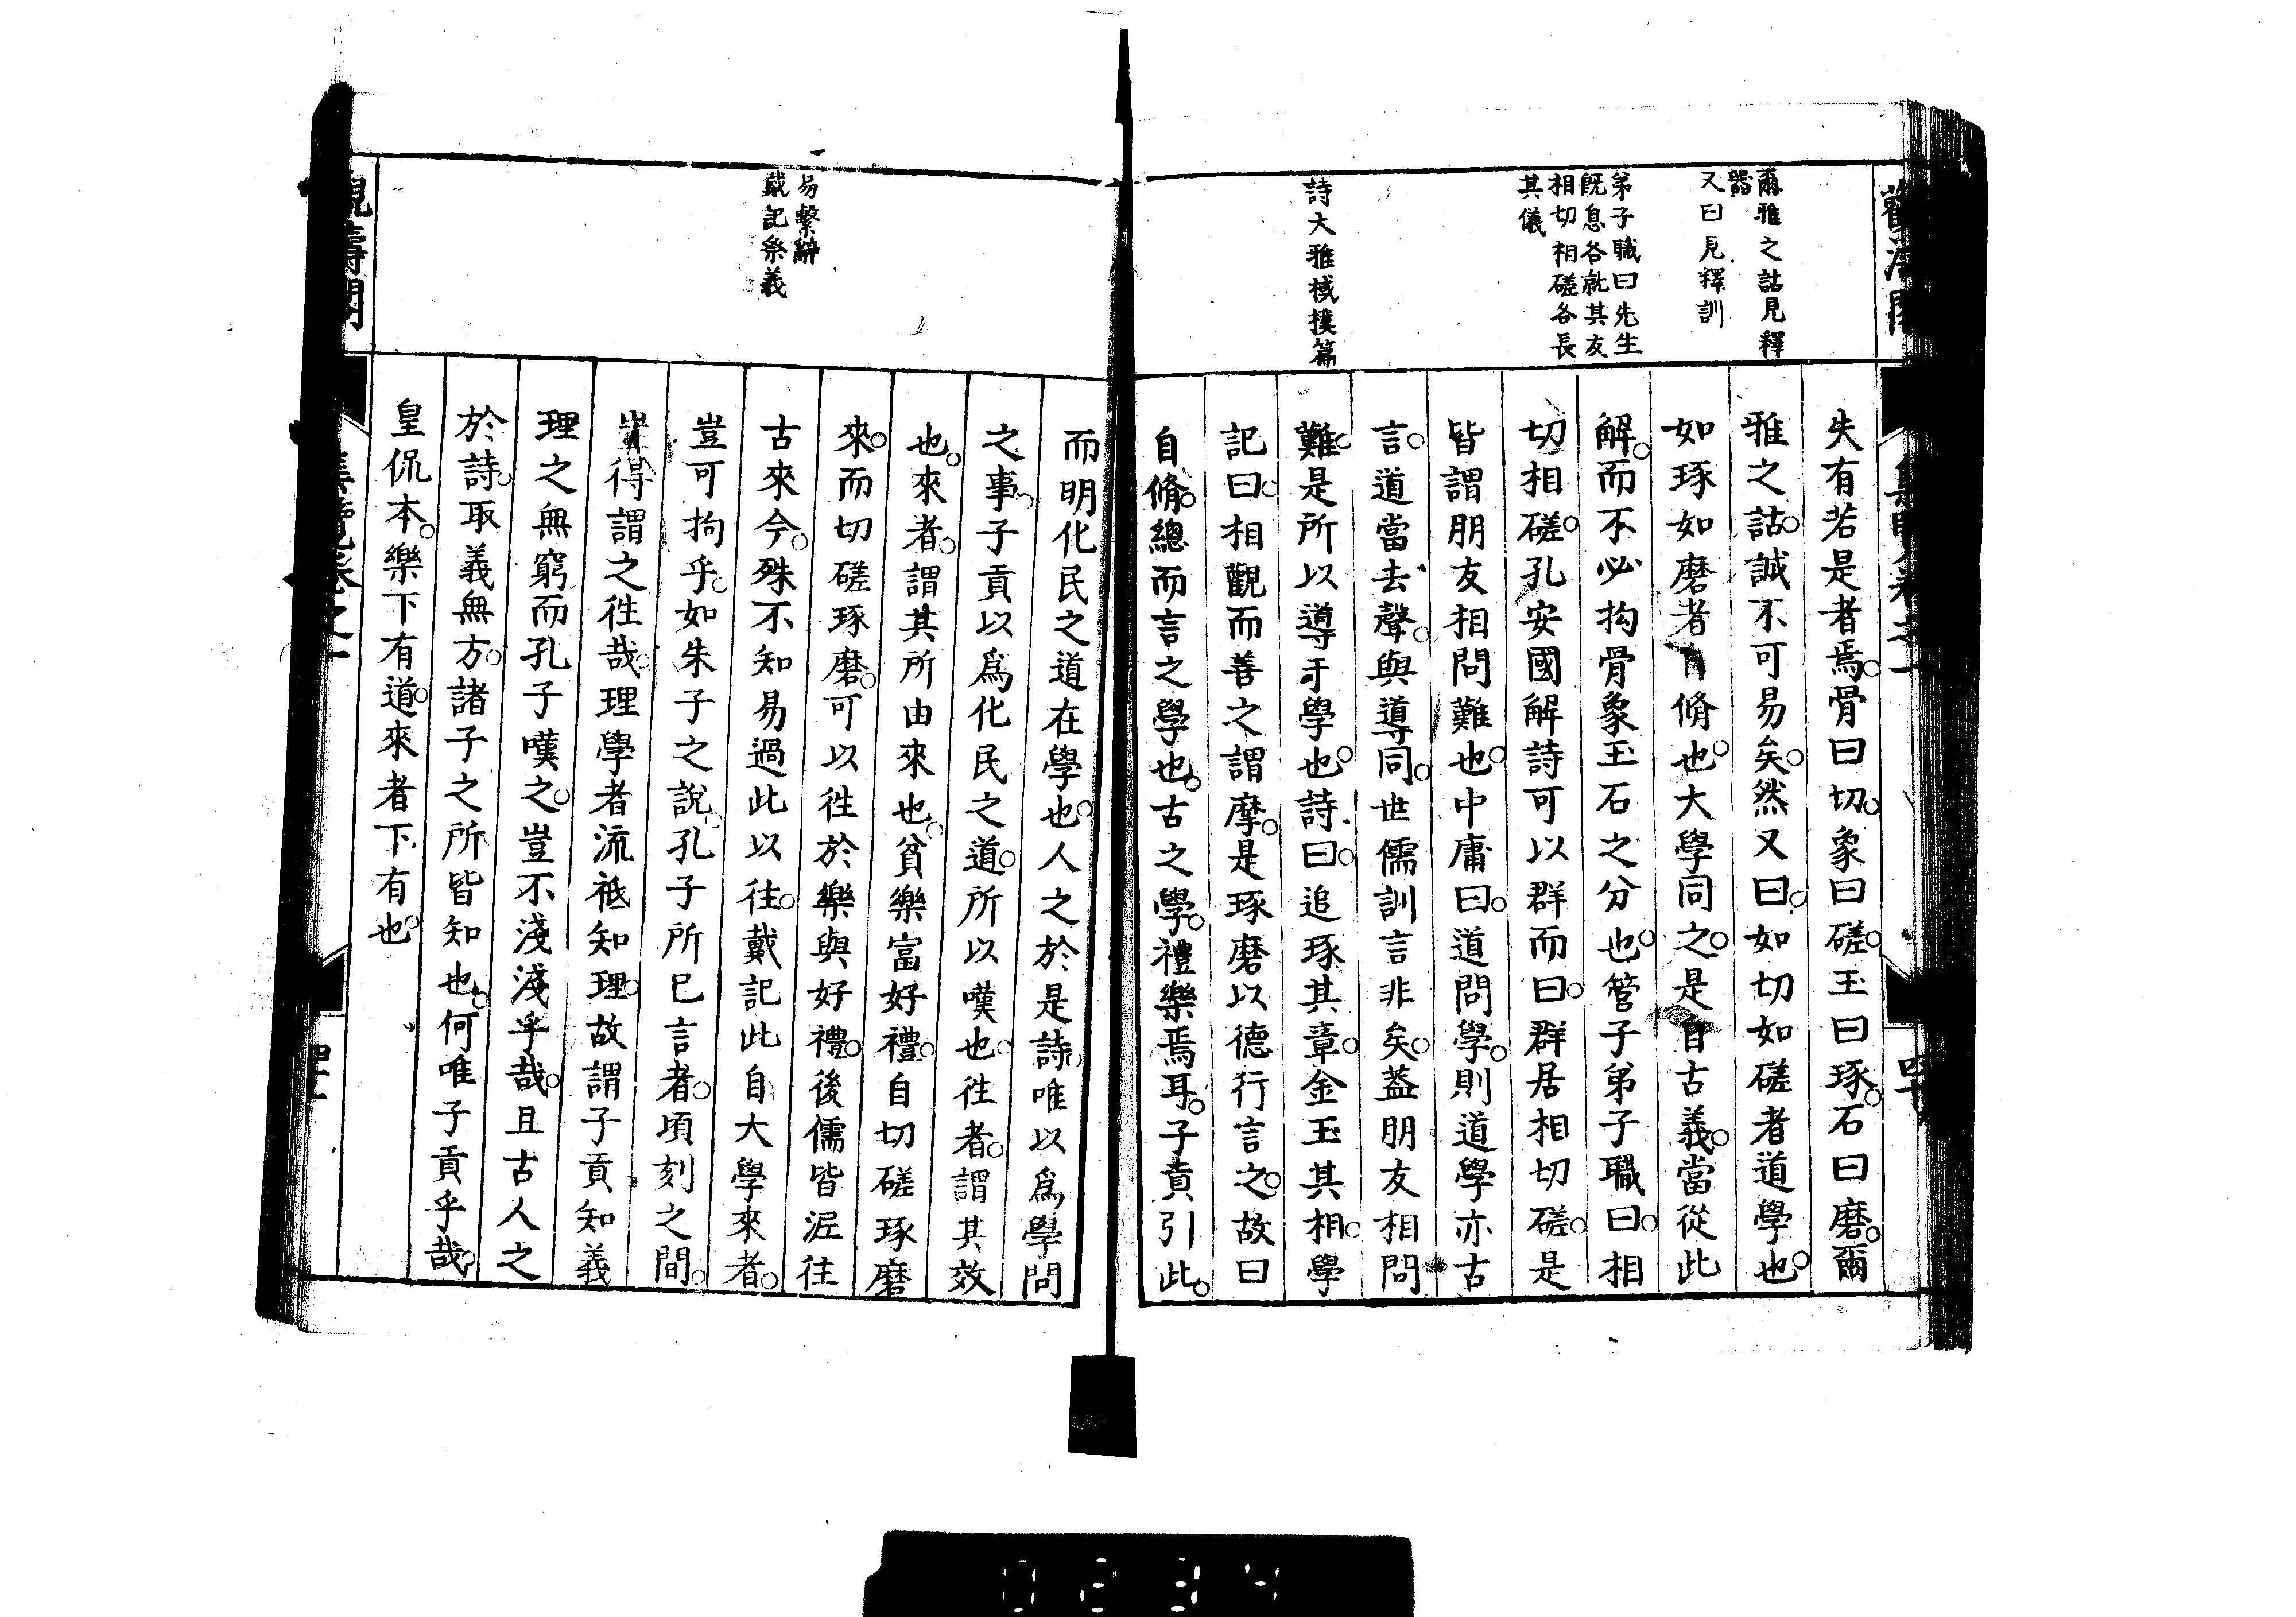 爾雅之詁見釋
器
又曰見釋訓
弟子職曰先生
既息各就其友
相切相磋各長
其儀
詩大雅棫樸篇
失有若是者焉。骨曰切。象曰磋。玉曰琢。石曰磨。爾
雅之詁。誠不可易矣。然又曰。如切如磋者道學也。
如琢如磨者自脩也。大學同之。是自古義。當從此
解。而不必拘骨象玉石之分也。管子弟子職曰。相
切相磋。孔安國解詩可以群而曰。群居相切磋。是
皆謂朋友相問難也。中庸曰。道問學。則道學亦古
言。道當去聲。與導同。世儒訓言非矣。蓋朋友相問
難。是所以導于學也。詩曰。追琢其章。金玉其相。學
記曰。相觀而善之謂摩。是琢磨以德行言之。故曰
自脩。總而言之學也。古之學。禮樂焉耳。子貢引此。
易繫辭
戴記祭義
而明化民之道在學也。人之於是詩。唯以爲學問
之事。子貢以爲化民之道。所以嘆也。徃者。謂其效
也。來者。謂其所由來也。貧樂富好禮。自切磋琢磨
來。而切磋琢磨。可以徃於樂與好禮。後儒皆泥往
古來今。殊不知易過此以往。戴記此自大學來者。
豈可拘乎。如朱子之說。孔子所已言者。頃刻之間。
豈得謂之徃哉。理學者流祗知理。故謂子貢知義
理之無窮而孔子嘆之。豈不淺淺乎哉。且古人之
於詩。取義無方。諸子之所皆知也。何唯子貢乎哉。
皇侃本。樂下有道。來者下有也。
集覽卷之一
0234